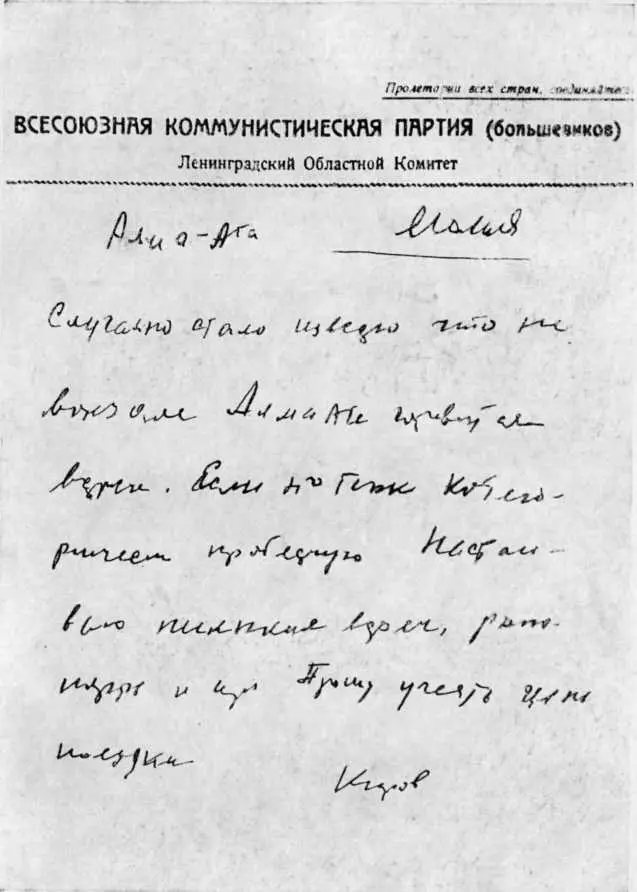 Пролетарии всех стран, соединяйтесь
ВСЕСОЮЗНАЯ КОММУНИСТИЧЕСКАЯ ПАРТИЯ (большевиков)
Ленинградский Областной Комитет
Алма-Ата
Случайно стало изведно что на
вокзале Алмаате готовится
встреча. Если это так катего-
рически Настаи-
ваю никаких встреч, рапо-
Прошу учесть цель
поездки
Киров